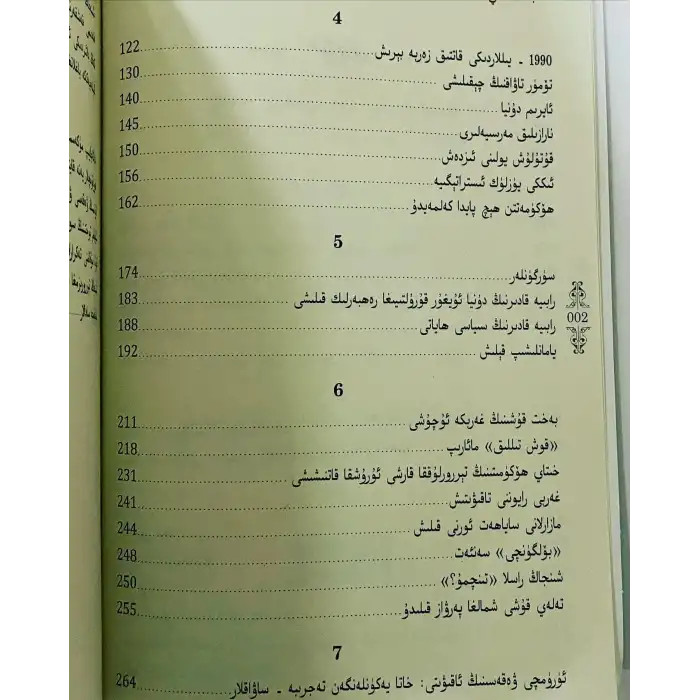 4
1990 - يىللاردىكى قاتتىق زەربە بېرىش 122
تۆمۈر تاۋاقنىڭ چېقىلىشى 130
ئايرىم دۇنيا 140
نارازىلىق مەرسىيەلىرى 145
قۇتۇلۇش يولىنى ئىزدەش 150
ئىككى يۈزلۈك ئىستراتېگىيە 156
ھۆكۈمەتتن ھېچ پايدا كەلمەيدۇ 162
5
سۈرگۈنلەر 174
رابىيە قادىرنىڭ دۇنيا ئۇيغۇر قۇرۇلتىيىغا رەھبەرلىك قىلىشى 183
رابىيە قادىرنىڭ سىياسى ھاياتى 188
يامانلىشىپ قېلىش 192
002
6
بەخت قۇشىنىڭ غەربكە ئۇچۇشى 211
«قوش تىللىق» مائارىپ 218
خىتاي ھۆكۈمىتىنىڭ تېررورلۇققا قارشى ئۇرۇشقا قاتنىشىشى 231
غەربى رايوننى تاقىۋىتىش 241
مازارلانى ساياھەت ئورنى قىلىش 244
«بۆلگۈنچى» سەنئەت 248
شىنجاڭ راسلا «تىنچمۇ؟» 250
تەلەي قۇشى شىمالغا پەرۋاز قىلىدۇ 255
7
ئۈرۈمچى ۋەقەسىنىڭ ئاقىۋىتى: خاتا يەكۈنلەنگەن تەجرىبە - ساۋاقلار 264